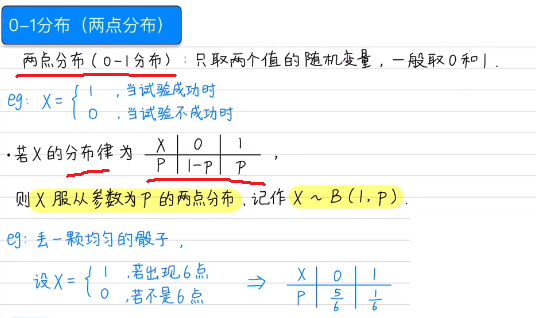 0-1分布（两点分布）
两点分布（0-1分布）：只取两个值的随机变量，一般取0和1.
eg: X = { 1 , 当试验成功时
0 , 当试验不成功时
·若X的分布律为 X | 0 | 1
P | 1-P | P ,
则X服从参数为P的两点分布,记作 X ~ B(1, P).
eg: 丢一颗均匀的骰子,
设X = { 1 , 若出现6点 ⇒ X | 0 | 1
0 , 若不是6点 P | 5/6 | 1/6